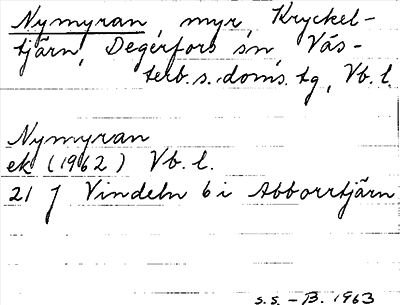 Nymyran, myr, Kryckel-
tjärn, Degerfors sn, Väs-
terb. s. doms. tg, Vb. l.
Nymyran
ek (1962) Vb. l.
21 J Vindeln 6 i Abborrtjärn
s.s. - B. 1963